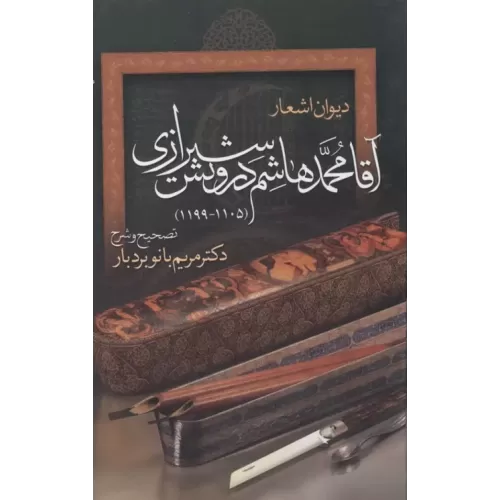 دیوان اشعار
آقا محمّد هاشم درویش شیرازی
(۱۱۰۵-۱۱۹۹)
تصحیح و شرح
دکتر مریم بانو بردبار